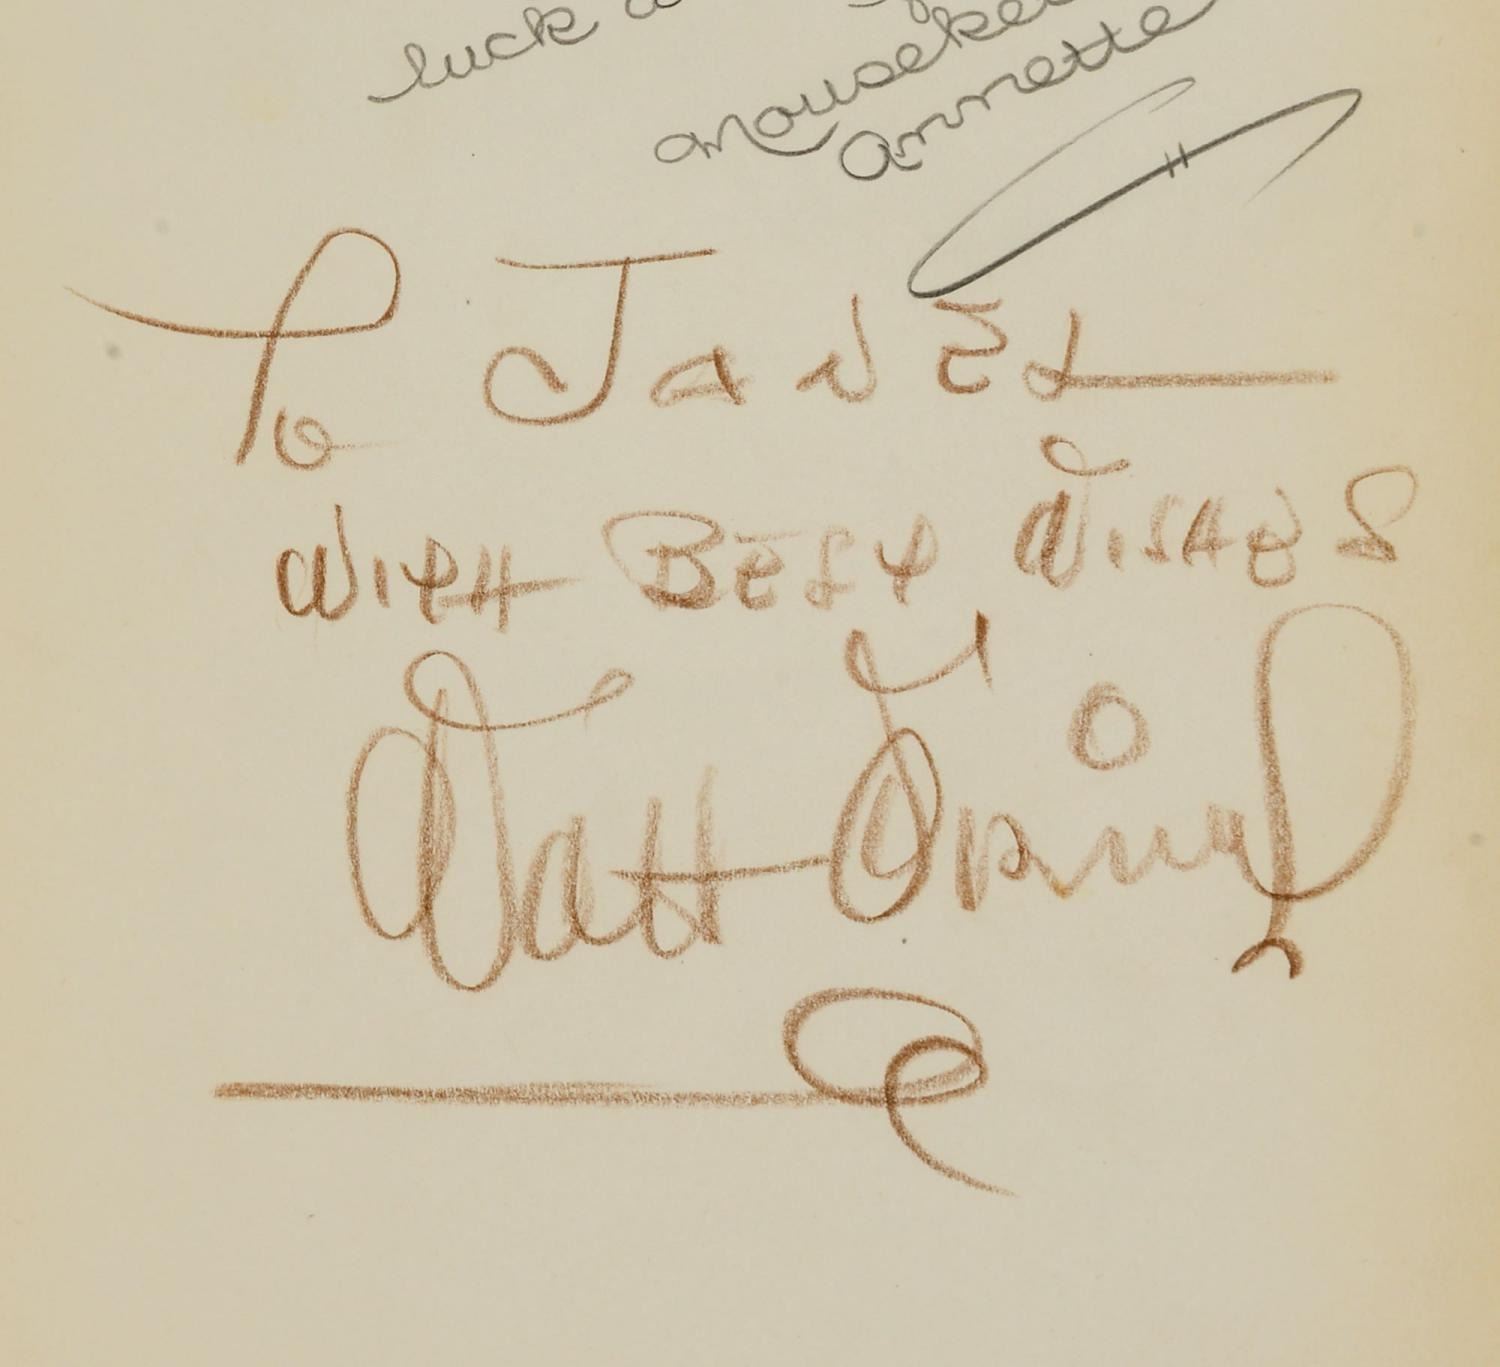 luck
Mouseke
Annette
To Janet
With Best Wishes
Walt Disney